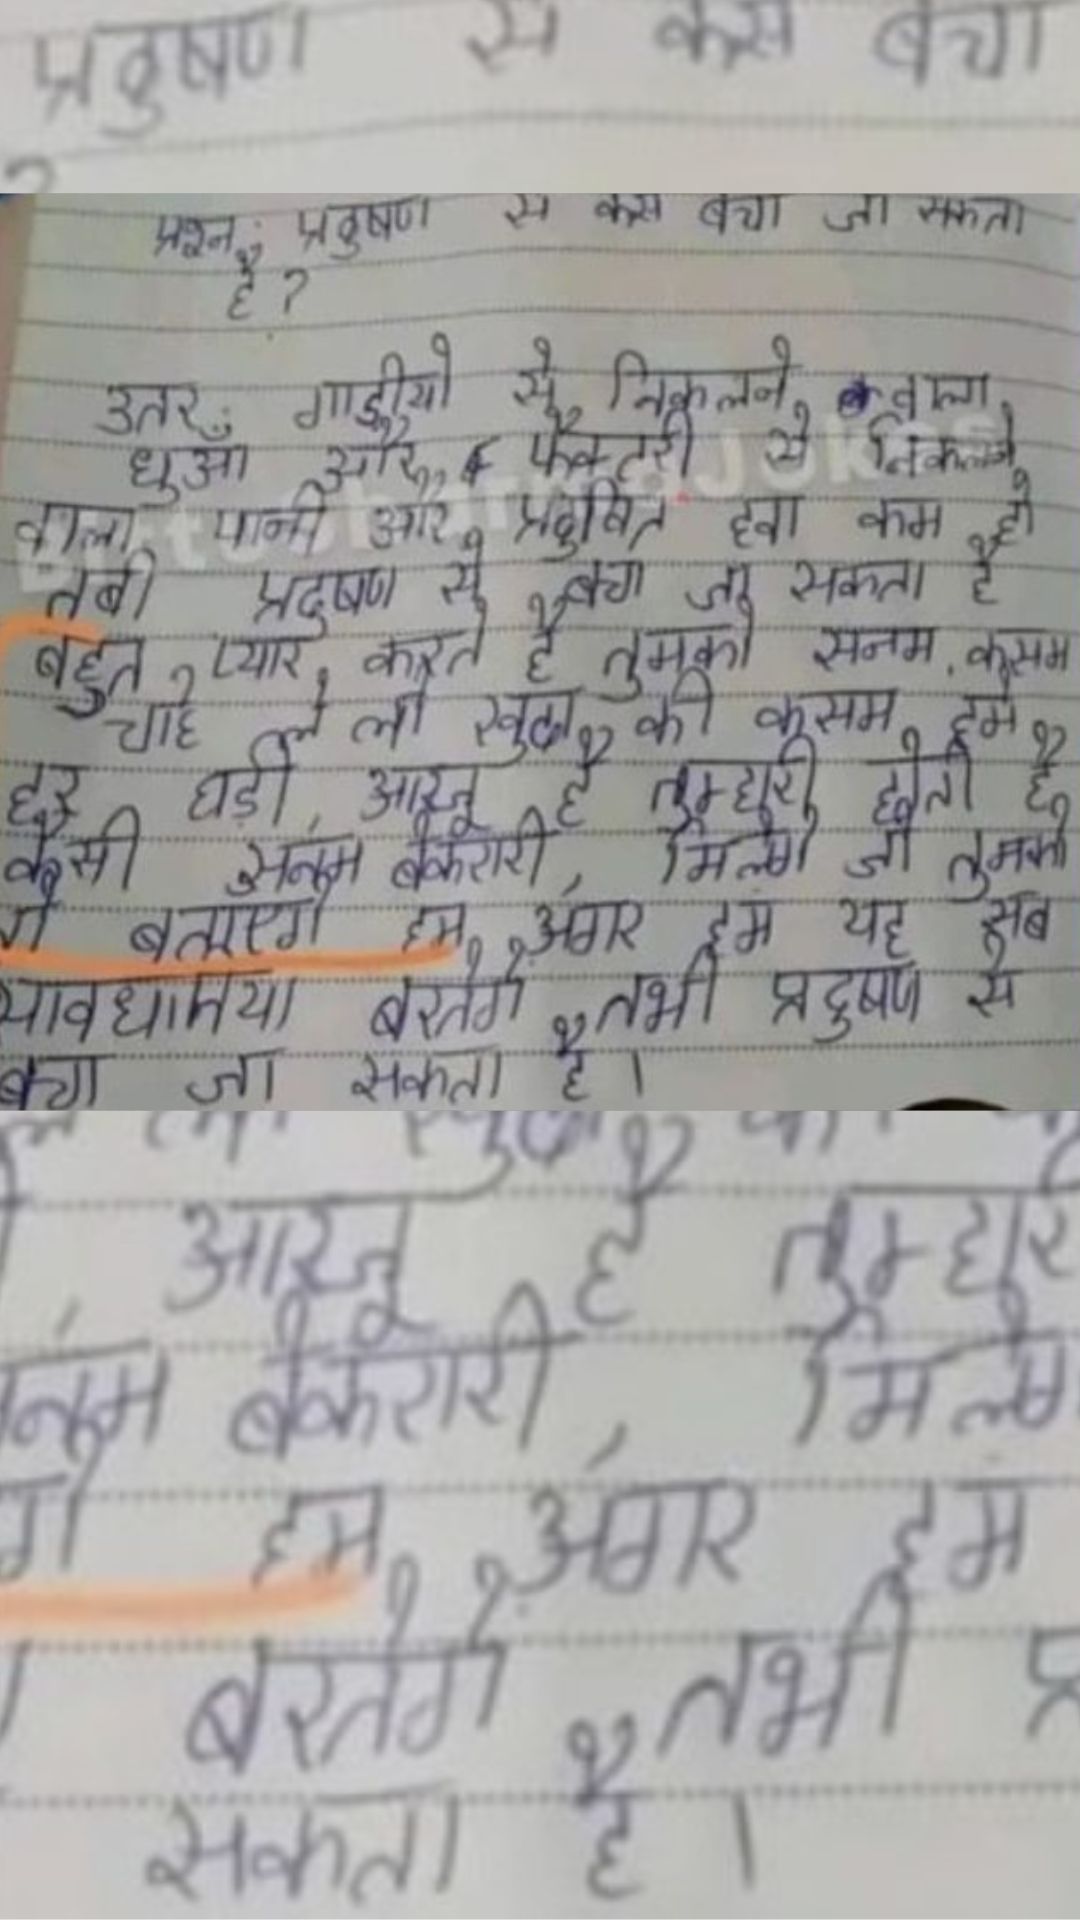 प्रदुषण से कैसे बचा
प्रश्न: प्रदुषण से कैसे बचा जा सकता
है ?
उतर: गाडीयो से निकलने वाला
धुआँ और फैक्टरी से निकलने
वाला पानी और प्रदुषित हवा कम हो
तबी प्रदुषण से बचा जा सकता है
बहुत प्यार करते है तुमको सनम, कसम
चाहे ले लो खुदा की कसम, हमे
हर घड़ी आरजू है तुम्हारी होती है
कैसी सनम बेकरारी, मिलेगे जो तुमको
बताएगे हम, अगर हम यह सब
सावधानिया बरतेगे तभी प्रदुषण से
बचा जा सकता है।
आरजू है
बेकरारी,
हम, अगर हम
बरतेगे तभी
सकता है।